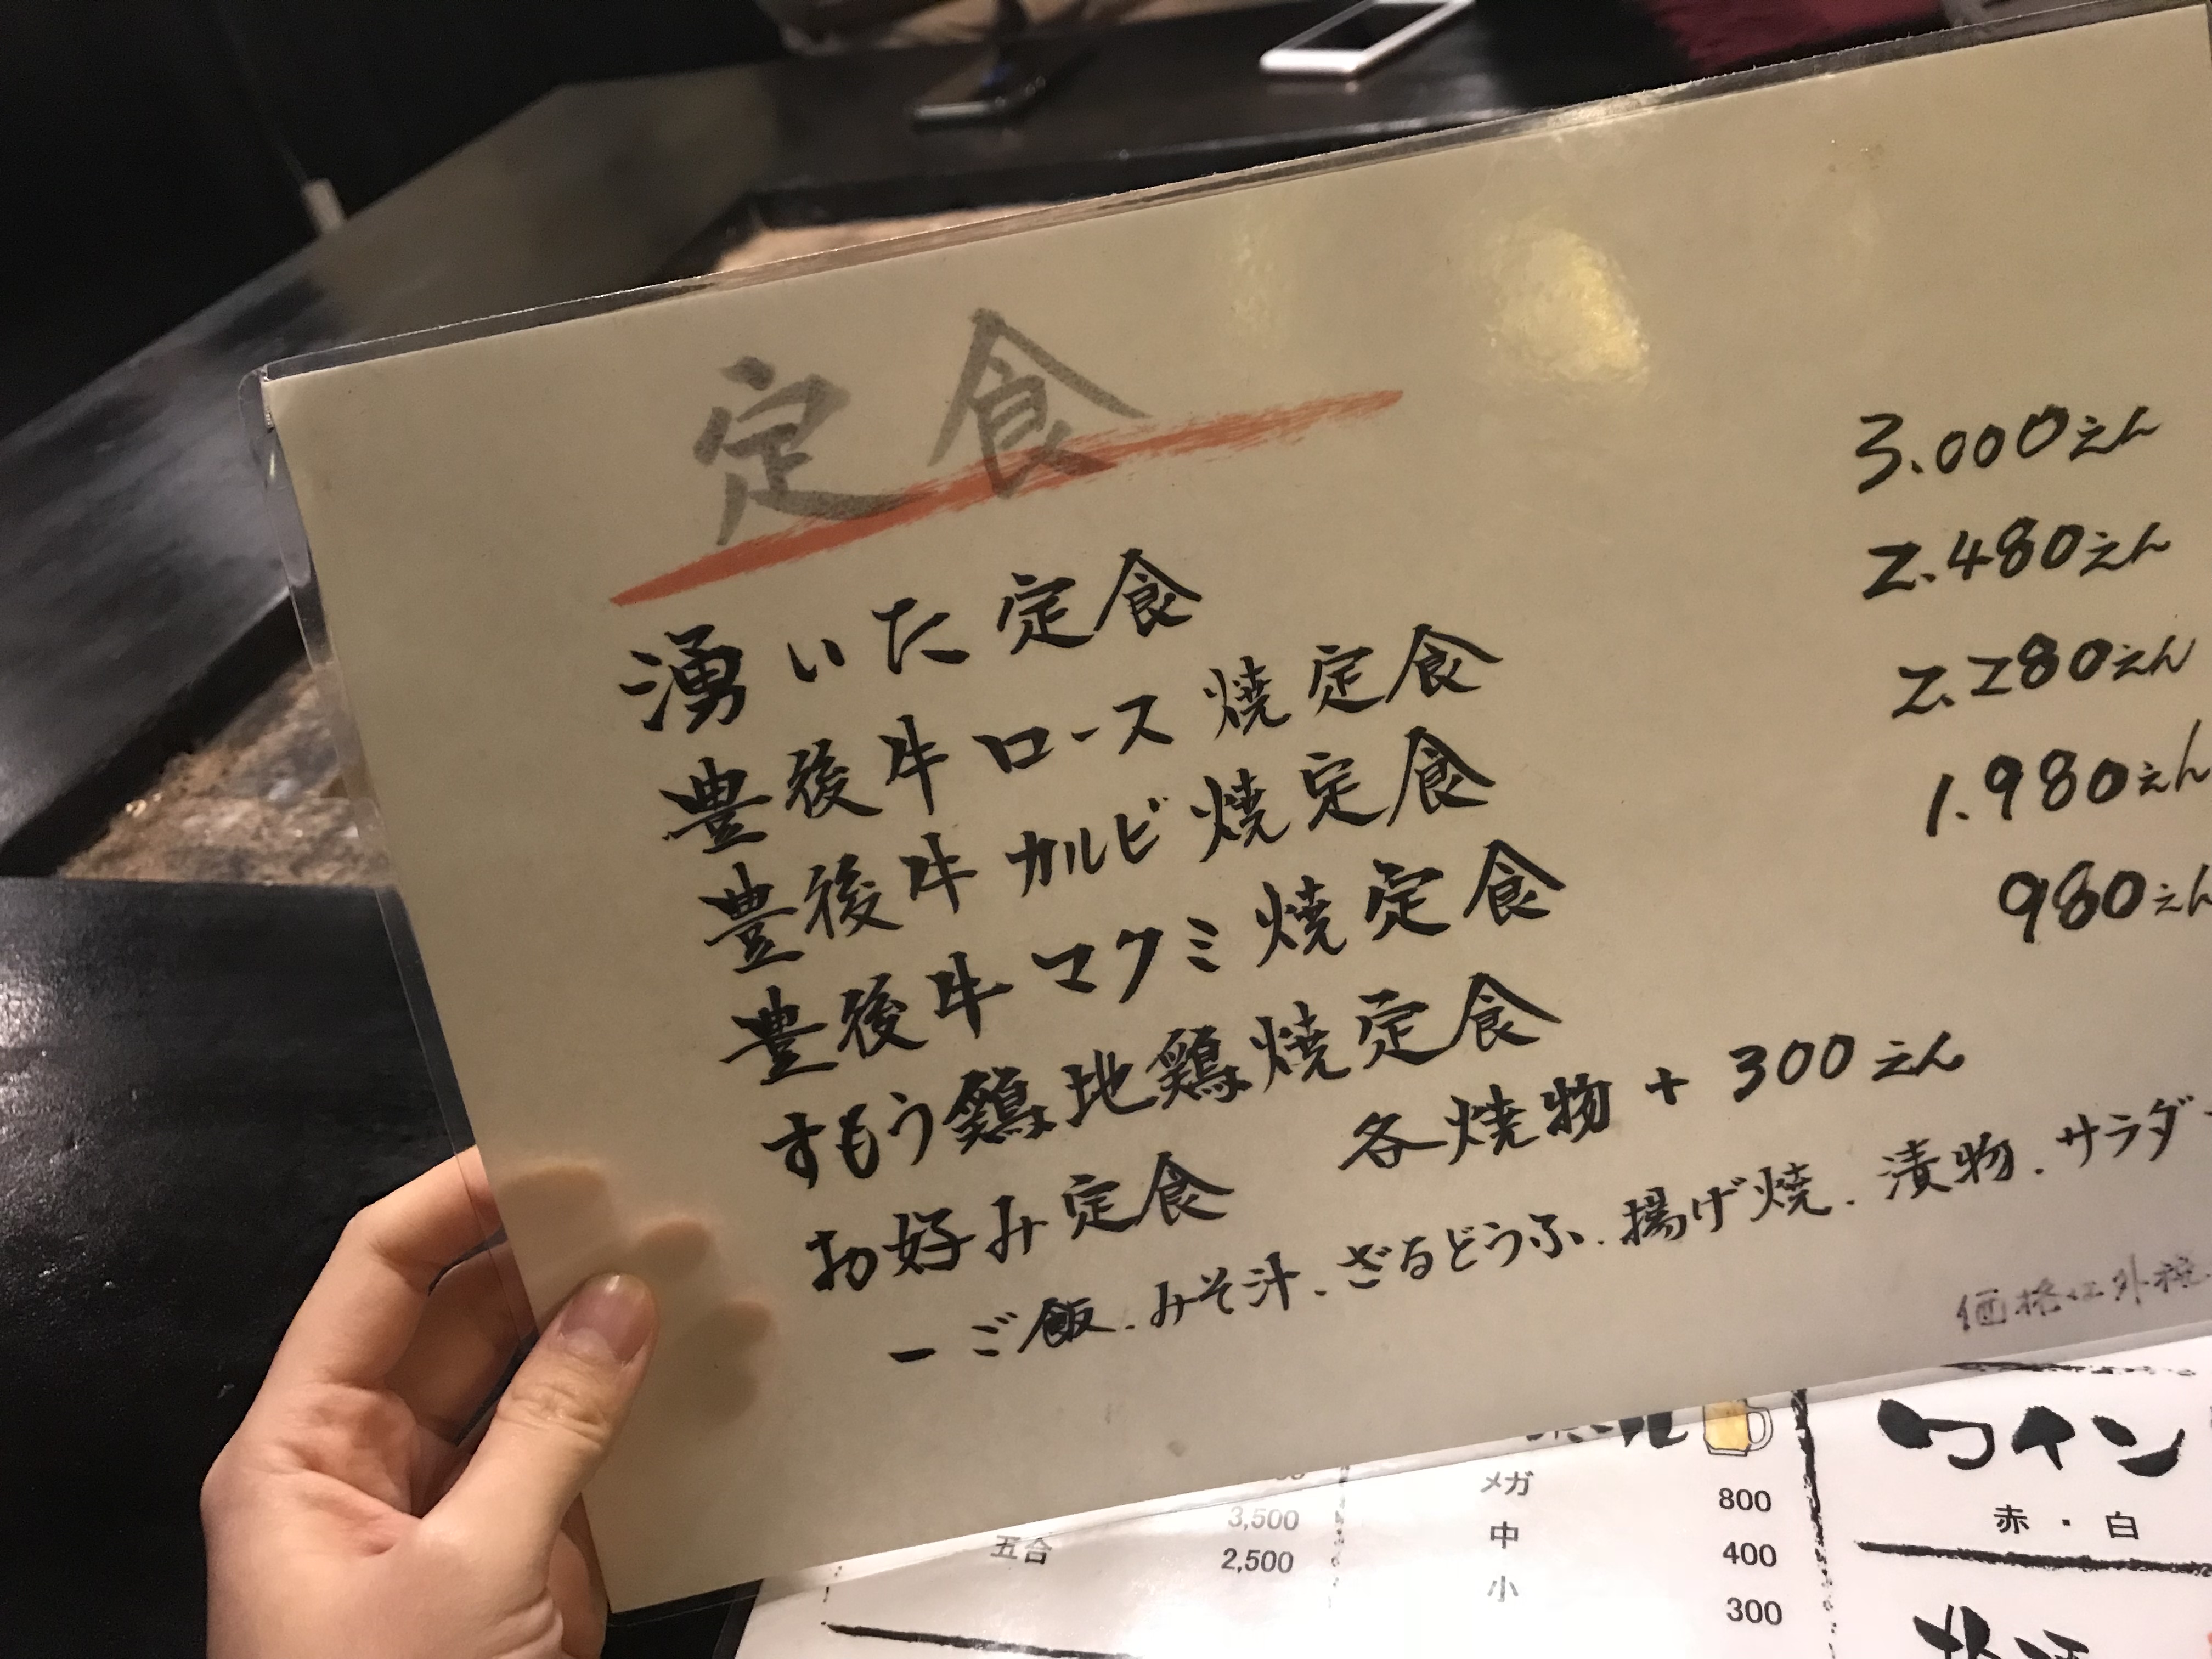 定食
湧いた定食 3.000えん
豊後牛ロース焼定食 2.480えん
豊後牛カルビ焼定食 2.280えん
豊後牛マクミ焼定食 1.980えん
すもう鶏地鶏焼定食 980えん
お好み定食 各焼物+300えん
ーご飯.みそ汁.ざるどうふ.揚げ焼.漬物.サラダ
価格は外税
3,500
五合 2,500
メガ 800
中 400
小 300
ワイン
赤・白